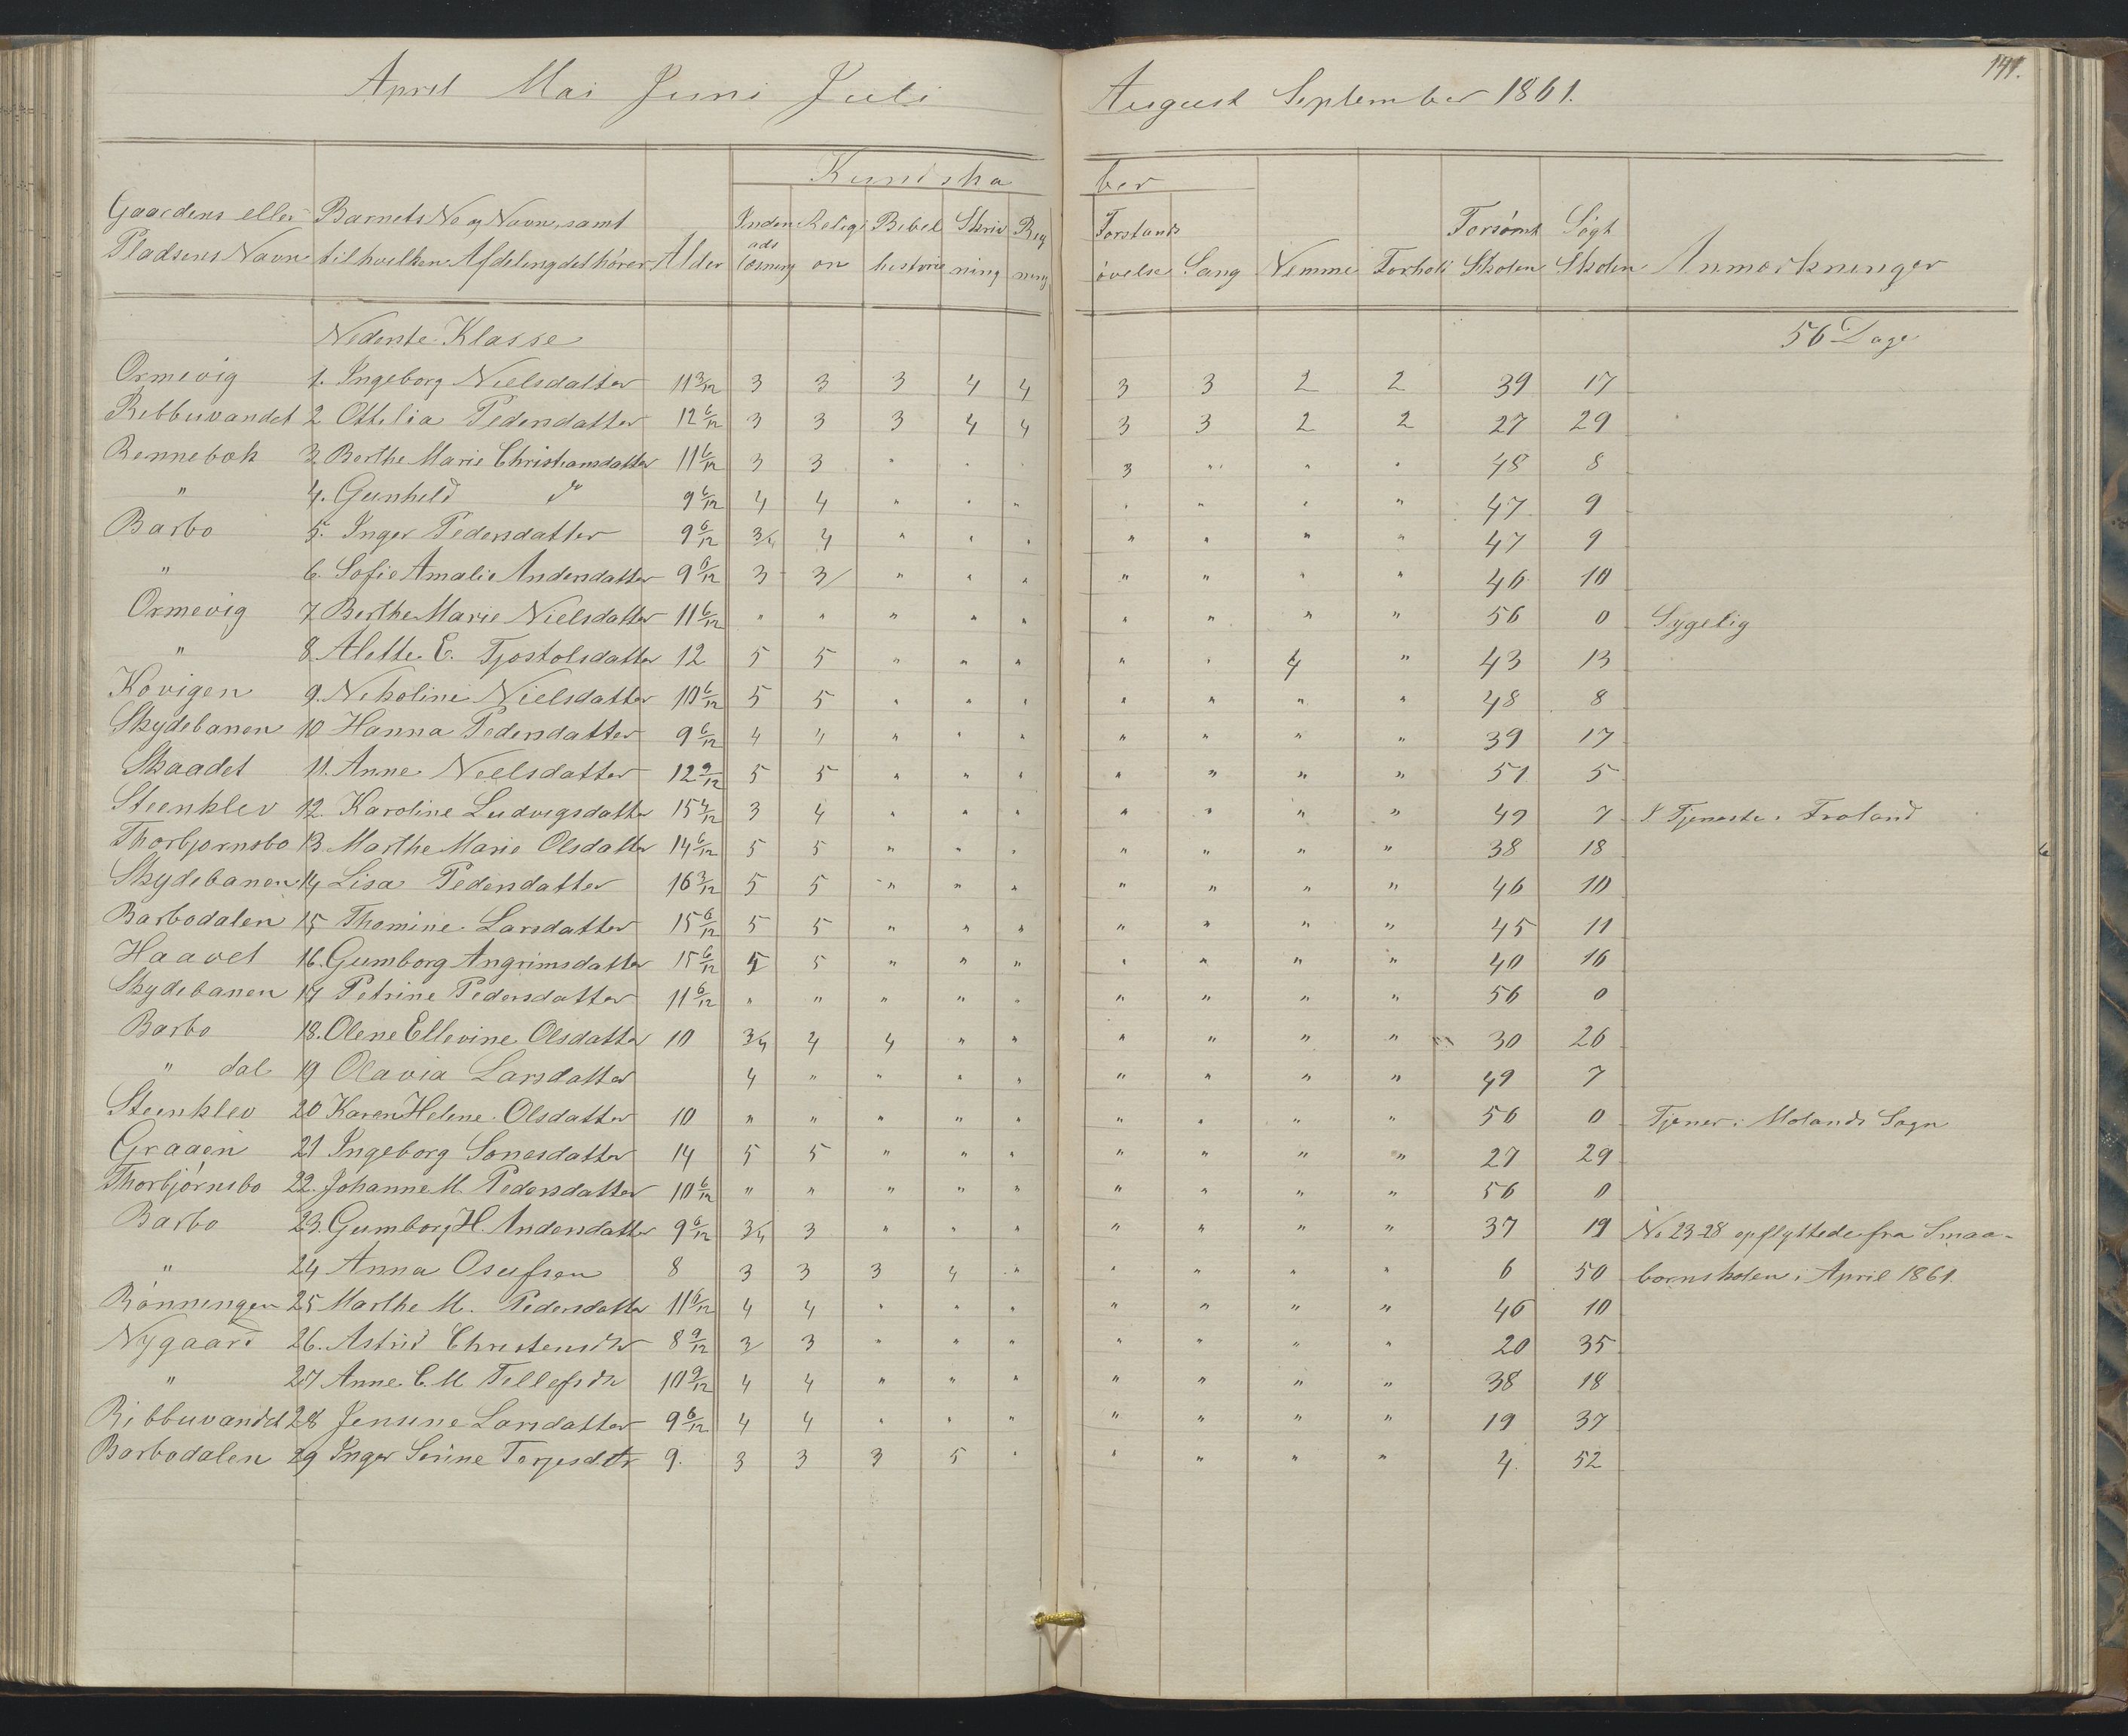 April Mai Juni Juli August September 1861.
141.
Kundska ber
Gaardens eller Pladsens Navn Barnets No og Navn, samt til hvilken Afdeling det hører Alder Inden ads læsning Religi on Bibel historie Skriv ning Reg ning Forstands øvelse Sang Nemme Forhold Forsømt Skolen Søgt Skolen Anmærkninger
Nederste Klasse 56 Dage
Ormevig 1. Ingeborg Nielsdatter 11 3/12 3 3 3 4 4 3 3 2 2 39 17
Ribbuvandet 2 Ottilia Pedersdatter 12 6/12 3 3 3 4 4 3 3 2 2 27 29
Rennebæk 3. Berthe Marie Christiansdatter 11 6/12 3 3 " " " 3 " " " 48 8
" 4. Gunhild dr 9 6/12 4 4 " " " " " " " 47 9
Barbo 5. Inger Pedersdatter 9 6/12 3/4 4 " " " " " " " 47 9
" 6. Sofie Amalie Andersdatter 9 6/12 3 3 " " " " " " " 46 10
Ormevig 7 Berthe Marie Nielsdatter 11 6/12 " " " " " " " " " 56 0 Sygelig
" 8 Alette E. Tjostolsdatter 12 5 5 " " " " " 4 " 43 13
Kovigen 9. Nikoline Nielsdatter 10 6/12 5 5 " " " " " " " 48 8
Skydebanen 10 Hanna Pedersdatter 9 6/12 4 4 " " " " " " " 39 17
Skaadet 11. Anne Neelsdatter 12 9/12 5 5 " " " " " " " 51 5
Steenklev 12. Karoline Ludvigsdatter 15 4/12 3 4 " " " " " " " 49 7 I Tjeneste i Froland
Thorbjørnsbo 13. Marthe Marie Olsdatter 14 6/12 5 5 " " " " " " " 38 18
Skydebanen 14 Lisa Pedersdatter 16 3/12 5 5 " " " " " " " 46 10
Barbodalen 15 Thomine Larsdatter 15 6/12 5 5 " " " " " " " 45 11
Haavet 16. Gumborg Angrimsdatter 15 6/12 5 5 " " " " " " " 40 16
Skydebanen 17 Petrine Pedersdatter 11 6/12 " " " " " " " " " 56 0
Barbo 18. Olene Ellevine Olsdatter 10 3/4 4 4 " " " " " " 30 26
" dal 19 Olavia Larsdatter 4 " " " " " " " " 49 7
Steenklev 20 Karen Helene Olsdatter 10 " " " " " " " " " 56 0 Tjener i Molands Sogn
Graaen 21 Ingeborg Sonesdatter 14 5 5 " " " " " " " 27 29
Thorbjørnsbo 22. Johanne M. Pedersdatter 10 6/12 " " " " " " " " " 56 0
Barbo 23. Gumborg H. Andersdatter 9 6/12 3/4 3 " " " " " " " 37 19 No 23-28 opflyttede fra Smaa-
" 24 Anna Osufsen 8 3 3 3 4 " " " " " 6 50 børnskolen i April 1861.
Rønningen 25 Marthe M. Pedersdatter 11 6/12 4 4 " " " " " " " 46 10
Nygaard 26. Astrid Christensdr 8 9/12 3 3 " " " " " " " 20 35
" 27 Anne C. M Tellefsdr 10 9/12 4 4 " " " " " " " 38 18
Ribbuvandet 28 Jensine Larsdatter 9 6/12 4 4 " " " " " " " 19 37
Barbodalen 29 Inger Serine Torjesdtr 9. 3 3 3 5 " " " " " 4. 52